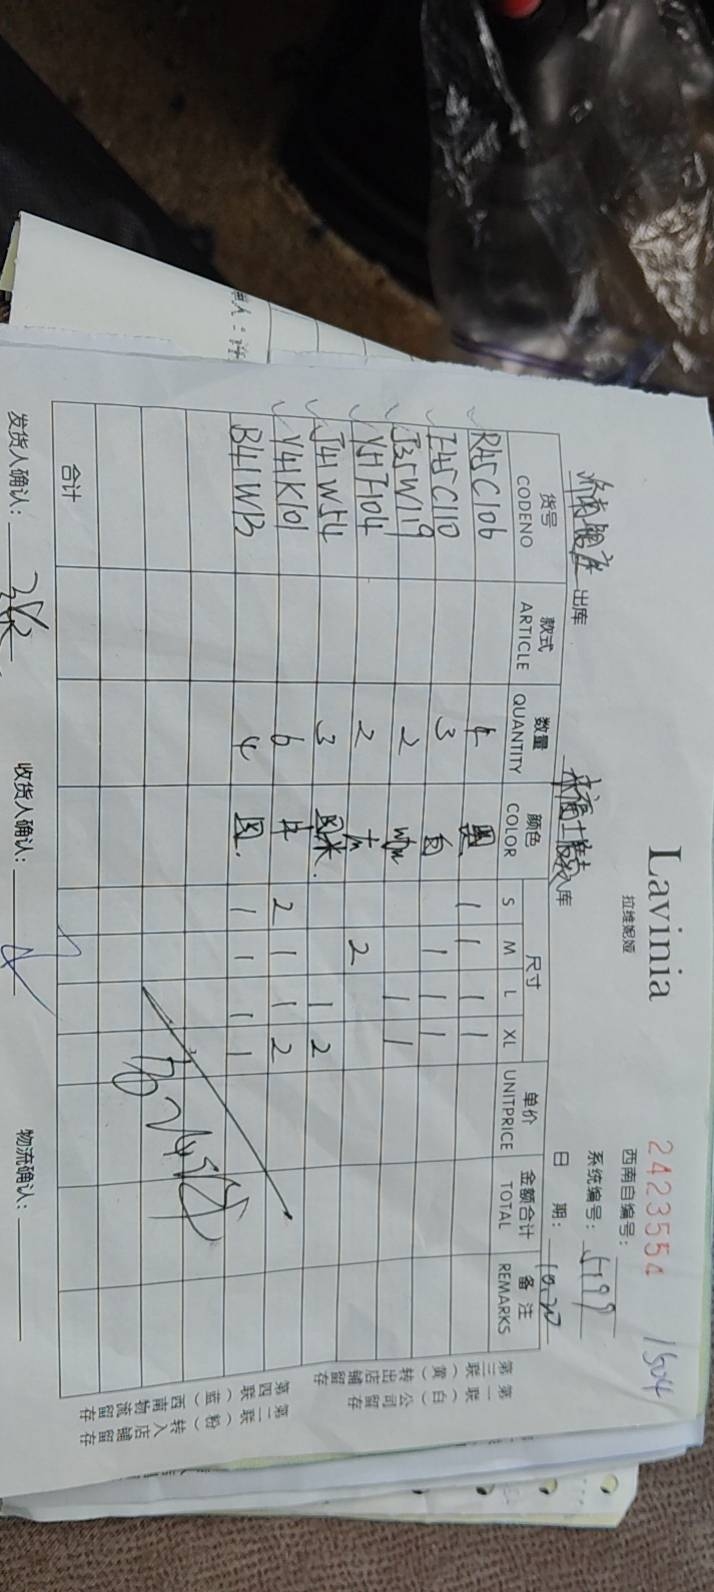 Lavinia
拉维妮娅
2423554
1504
西南自编号:
系统编号: 5199
出库
入库
日 期: 10.20
货号 款式 数量 颜色 尺寸 单价 金额合计 备注
CODENO ARTICLE QUANTITY COLOR S M L XL UNITPRICE TOTAL REMARKS
R45C106 4 黑 1 1 1 1
F45C110 3 白 1 1 1
J35W119 2 1 1
Y51F104 2 2
J41W54 3 1 2
Y41K101 6 2 1 1 2
B41W13 4 1 1 1 1
合计
第一联(白)公司留存
第三联(黄)转出店铺留存
第二联(粉)转入店铺留存
第四联(蓝)西南物流留存
发货人确认: 收货人确认: 物流确认: